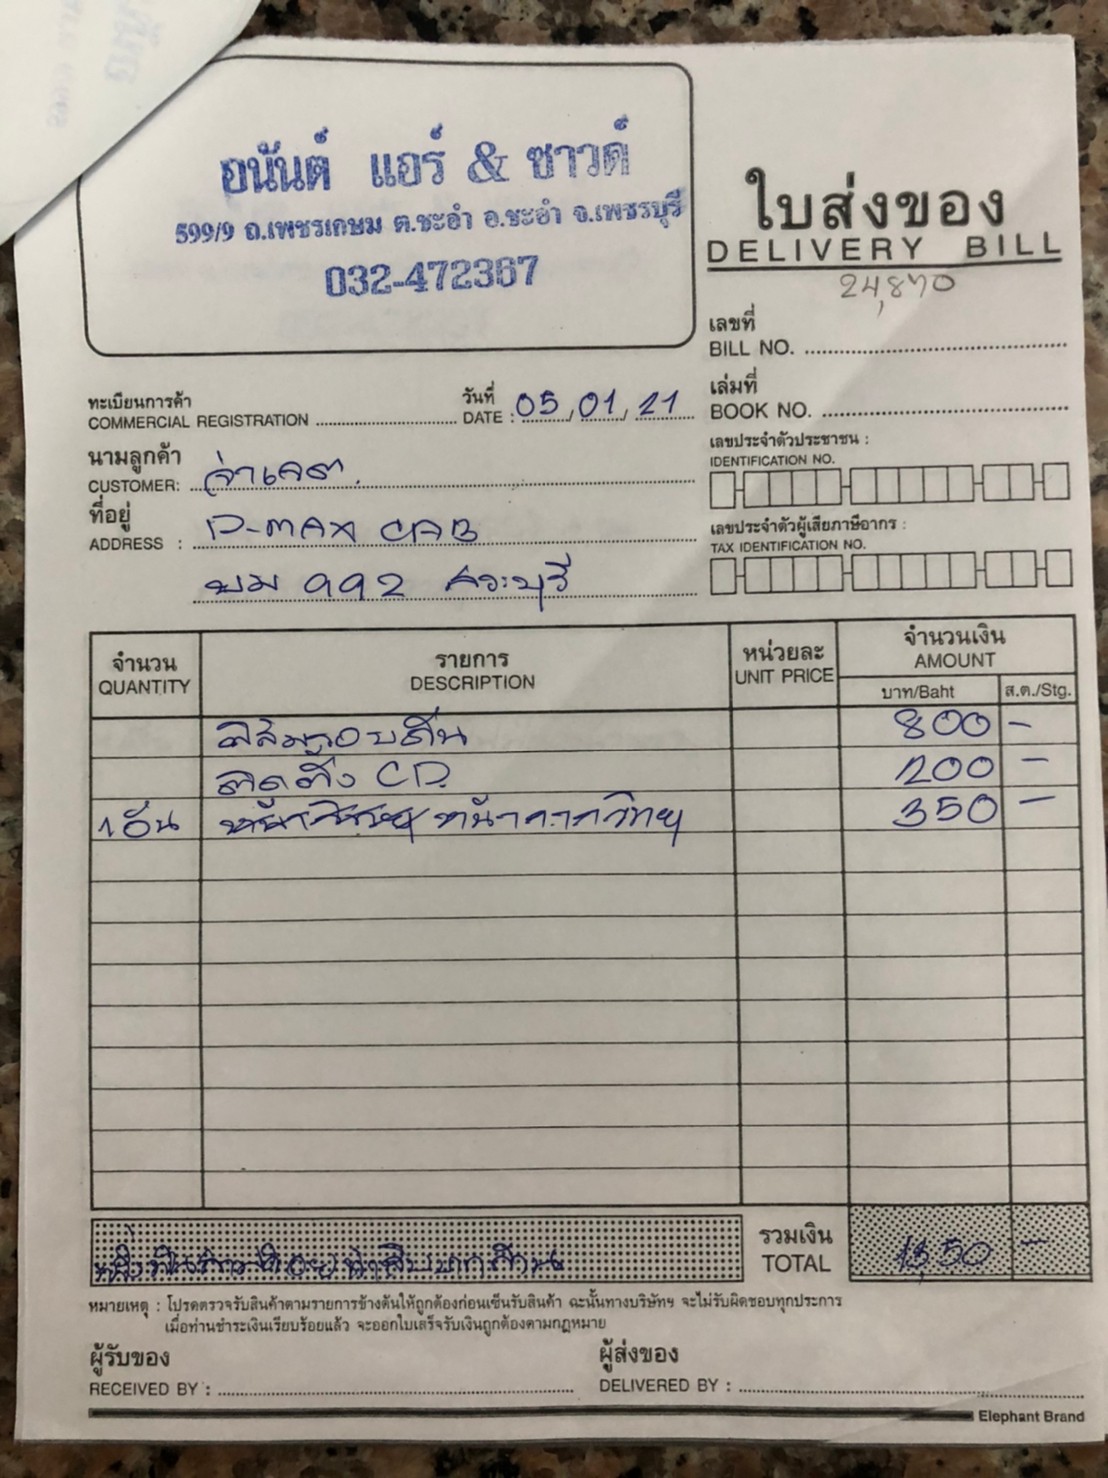 อนันต์ แอร์ & ซาวด์
599/9 ถ.เพชรเกษม ต.ชะอำ อ.ชะอำ จ.เพชรบุรี
032-472367
ใบส่งของ
DELIVERY BILL
24,870
เลขที่
BILL NO.
ทะเบียนการค้า
COMMERCIAL REGISTRATION
วันที่
DATE : 05/01/21
เล่มที่
BOOK NO.
นามลูกค้า
CUSTOMER: จ่าเจต
เลขประจำตัวประชาชน :
IDENTIFICATION NO.
ที่อยู่
ADDRESS : D-MAX CAB
เลขประจำตัวผู้เสียภาษีอากร :
TAX IDENTIFICATION NO.
992 สระบุรี
จำนวน
QUANTITY
รายการ
DESCRIPTION
หน่วยละ
UNIT PRICE
จำนวนเงิน
AMOUNT
บาท/Baht
ส.ต./Stg.
800 -
ติดตั้ง CD 200 -
1 อัน หน้ากากวิทยุ 350 -
รวมเงิน
TOTAL
1,350 -
หนึ่งพันสามร้อยห้าสิบบาทถ้วน
หมายเหตุ : โปรดตรวจรับสินค้าตามรายการข้างต้นให้ถูกต้องก่อนเซ็นรับสินค้า ฉะนั้นทางบริษัทฯ จะไม่รับผิดชอบทุกประการ
เมื่อท่านชำระเงินเรียบร้อยแล้ว จะออกใบเสร็จรับเงินถูกต้องตามกฎหมาย
ผู้รับของ
RECEIVED BY :
ผู้ส่งของ
DELIVERED BY :
Elephant Brand